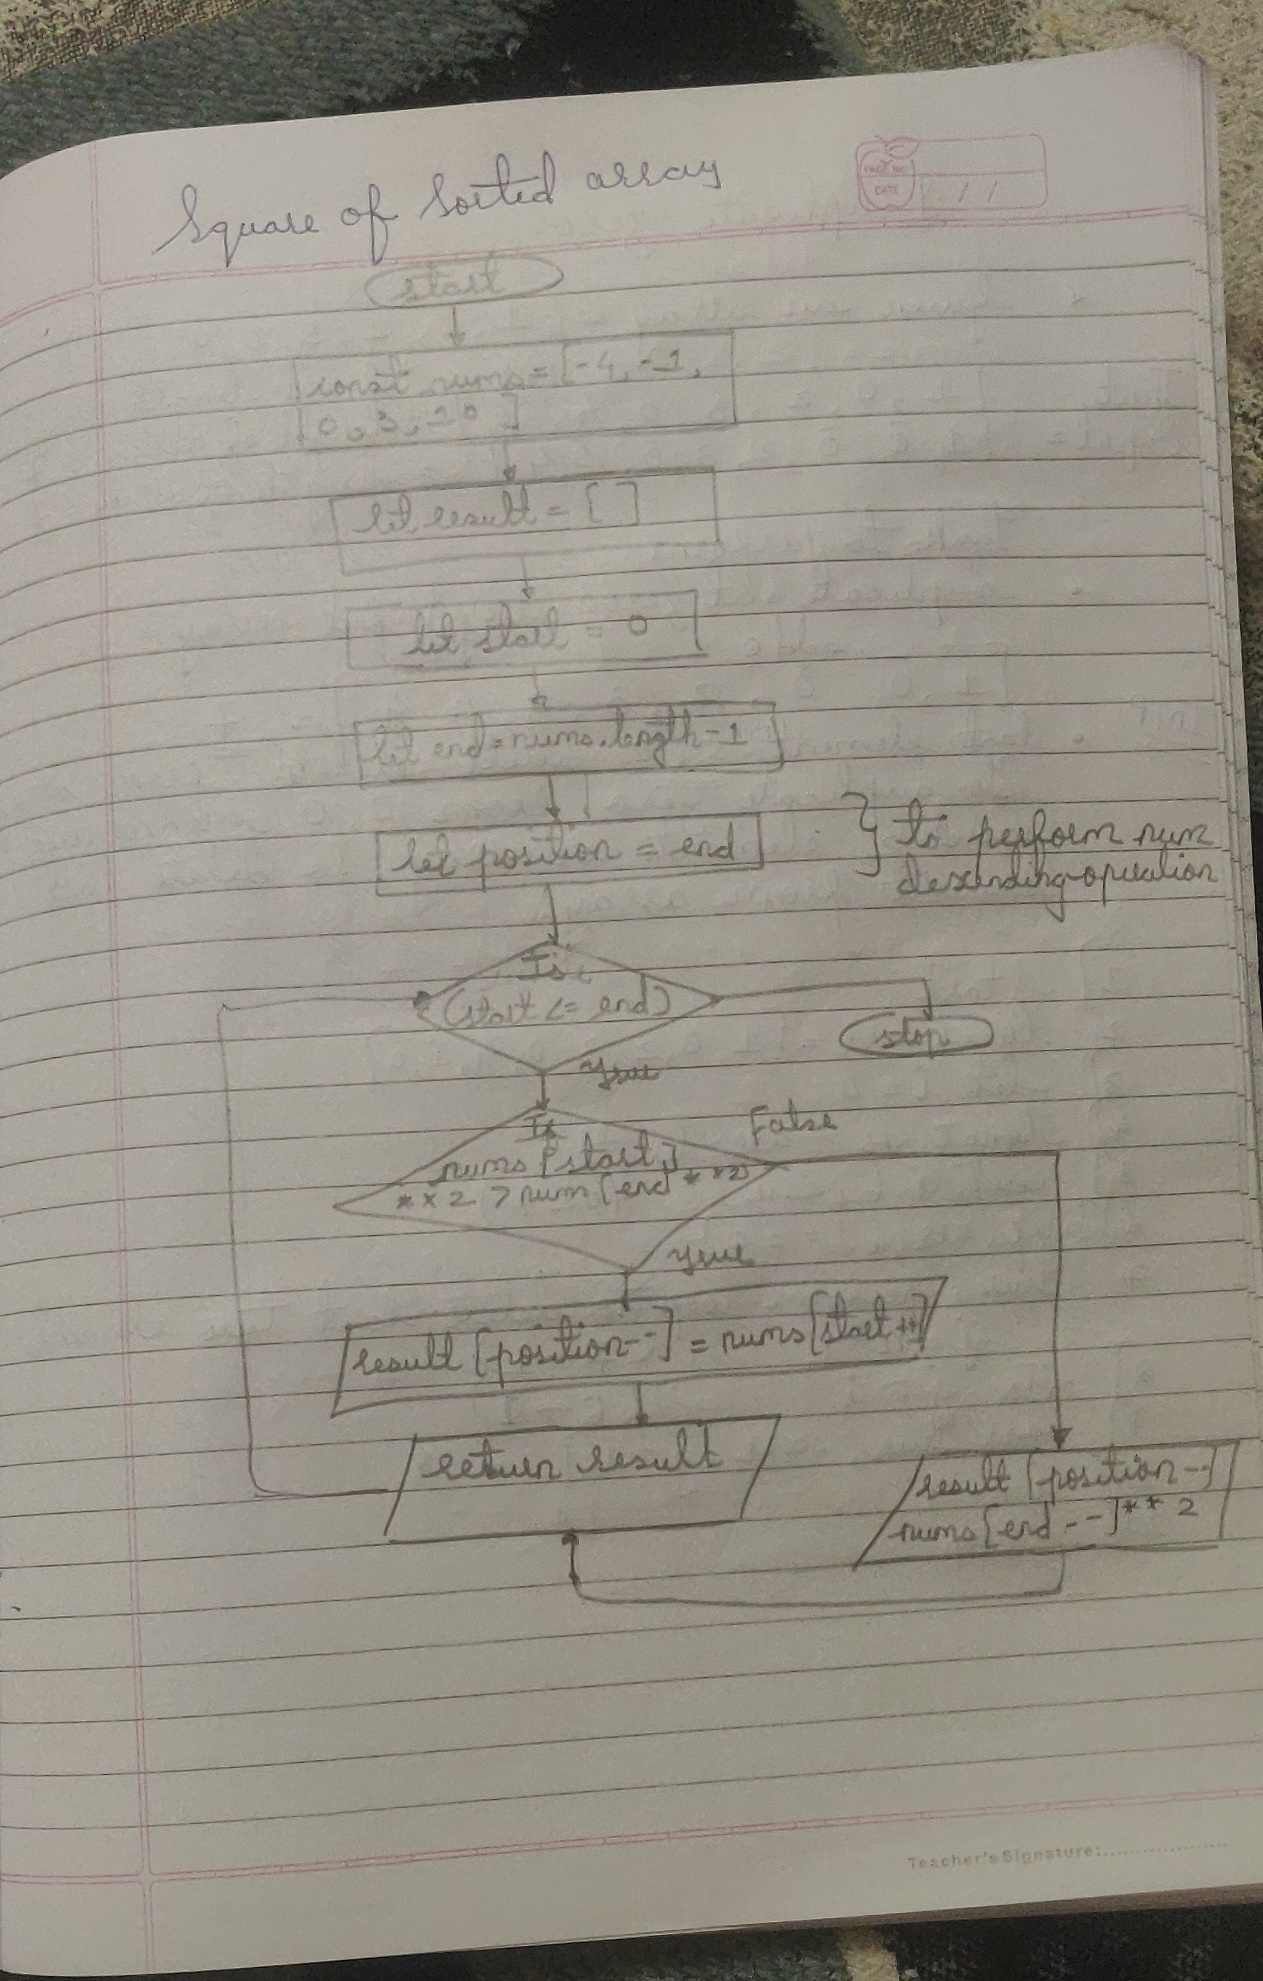 Square of Sorted array
PAGE NO.
DATE / /
start
const nums = [-4, -1,
0, 3, 10 ]
let result = [ ]
let start = 0
let end = nums.length-1
let position = end
to perform num
descending operation
Is
(start <= end)
stop
True
Is
nums [start]
**2 > num [end **2
False
True
result [position--] = nums[start++]
return result
result [position--]
nums[end--]**2
Teacher's Signature: